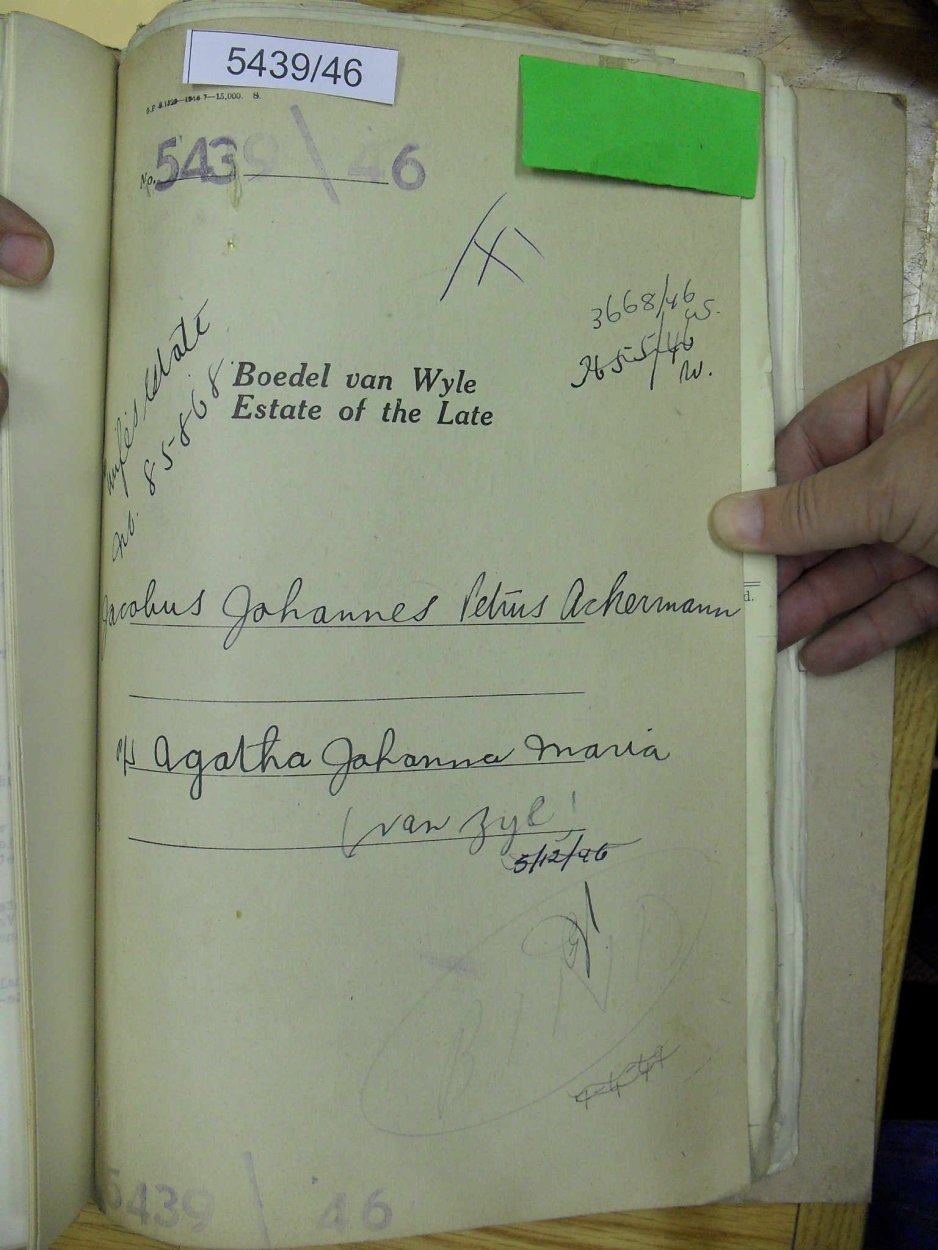 5439/46
No. 5439 / 46
3668/46
Wife's Estate
no. 85868
Boedel van Wyle
Estate of the Late
Jacobus Johannes Petrus Ackermann
Agatha Johanna Maria
(van Zyl)
5/12/46
BIND
d.
5439 / 46